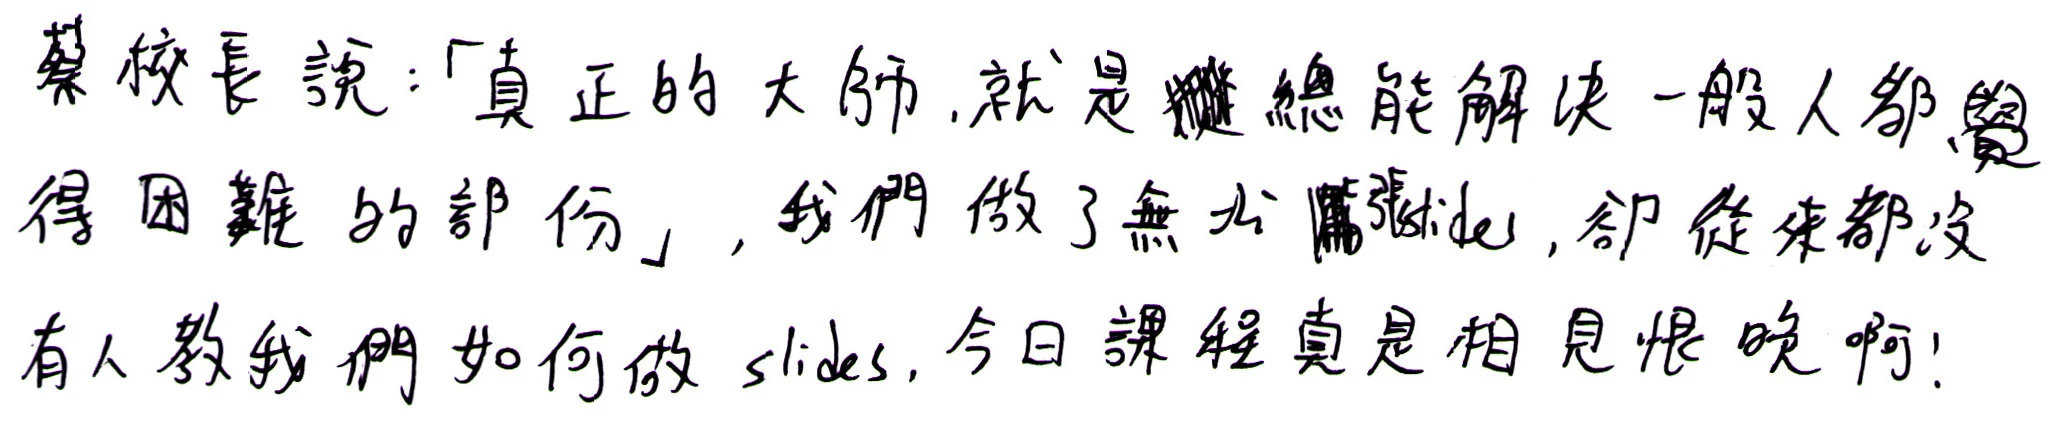 蔡校長說：「真正的大師，就是總能解決一般人都覺
得困難的部份」，我們做了無數張slides，卻從來都沒
有人教我們如何做slides，今日課程真是相見恨晚啊！